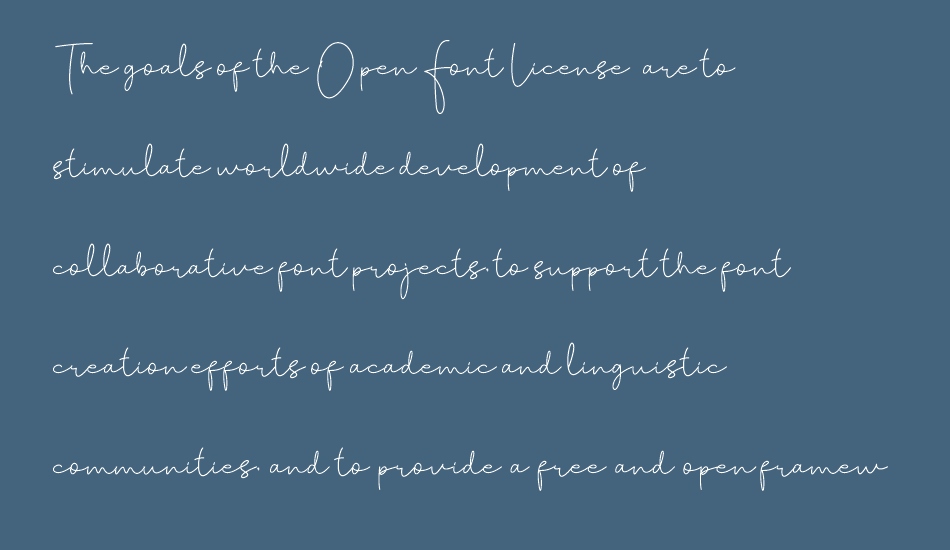 The goals of the Open Font License are to
stimulate worldwide development of
collaborative font projects, to support the font
creation efforts of academic and linguistic
communities, and to provide a free and open framew